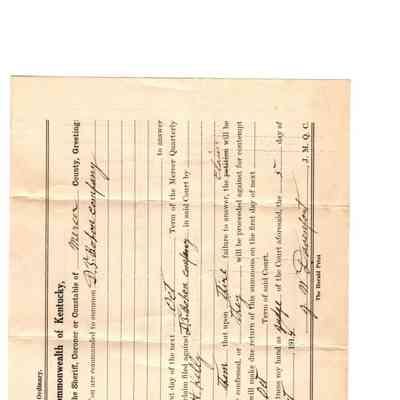 Ordinary.
mmonwealth of Kentucky,
he Sheriff, Coroner or Constable of Mercer County, Greeting:
ou are commanded to summon D. S. Company
to answer
st day of the next Oct Term of the Mercer Quarterly
claim filed against Company in said Court by
Lilly
them that upon their failure to answer, the petition will be
Claim
e confessed, or they will be proceeded against for contempt
will make due return of this summons on the first day of next
Oct Term of said Court.
itness my hand as Judge of the Court aforesaid, the 5 day of
1914
Davenport J. M. Q. C.
The Herald Print